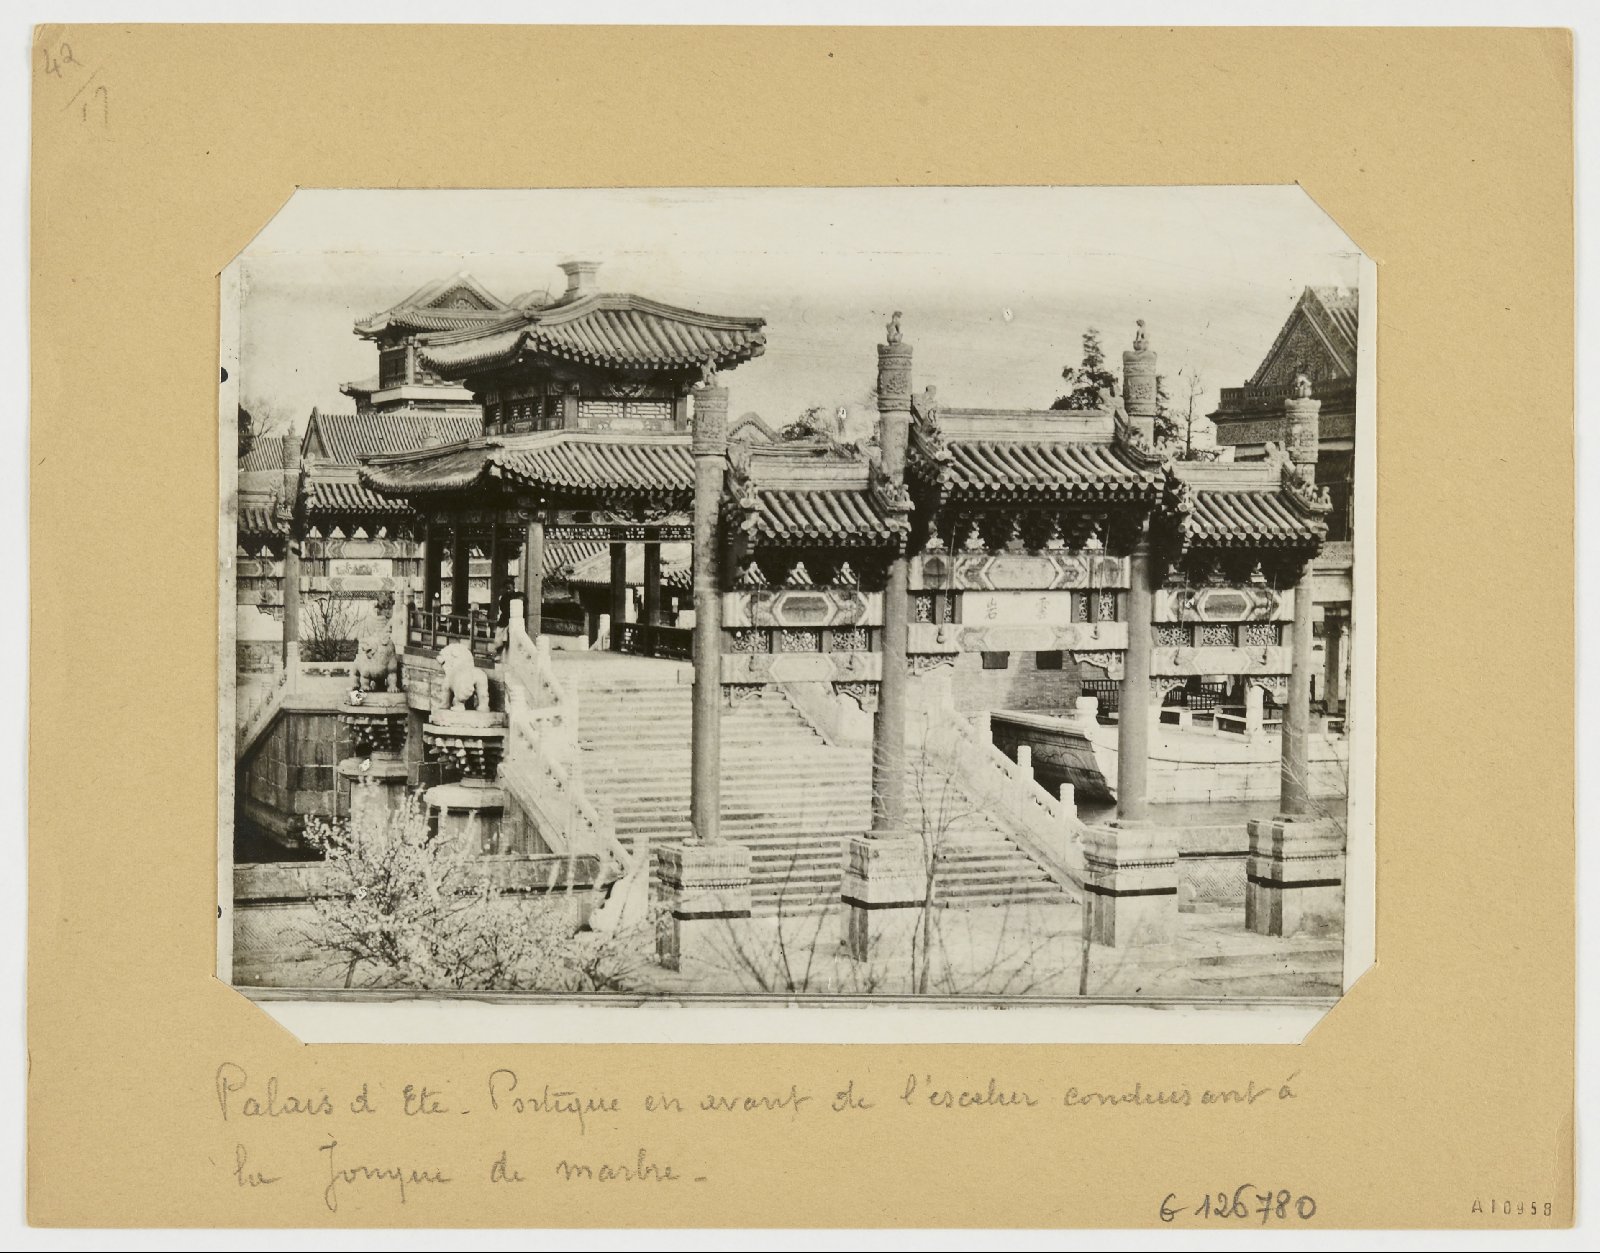 42
/17
Palais d'Eté - Portique en avant de l'escalier conduisant à
la Jonque de marbre -
G 126780
A10958